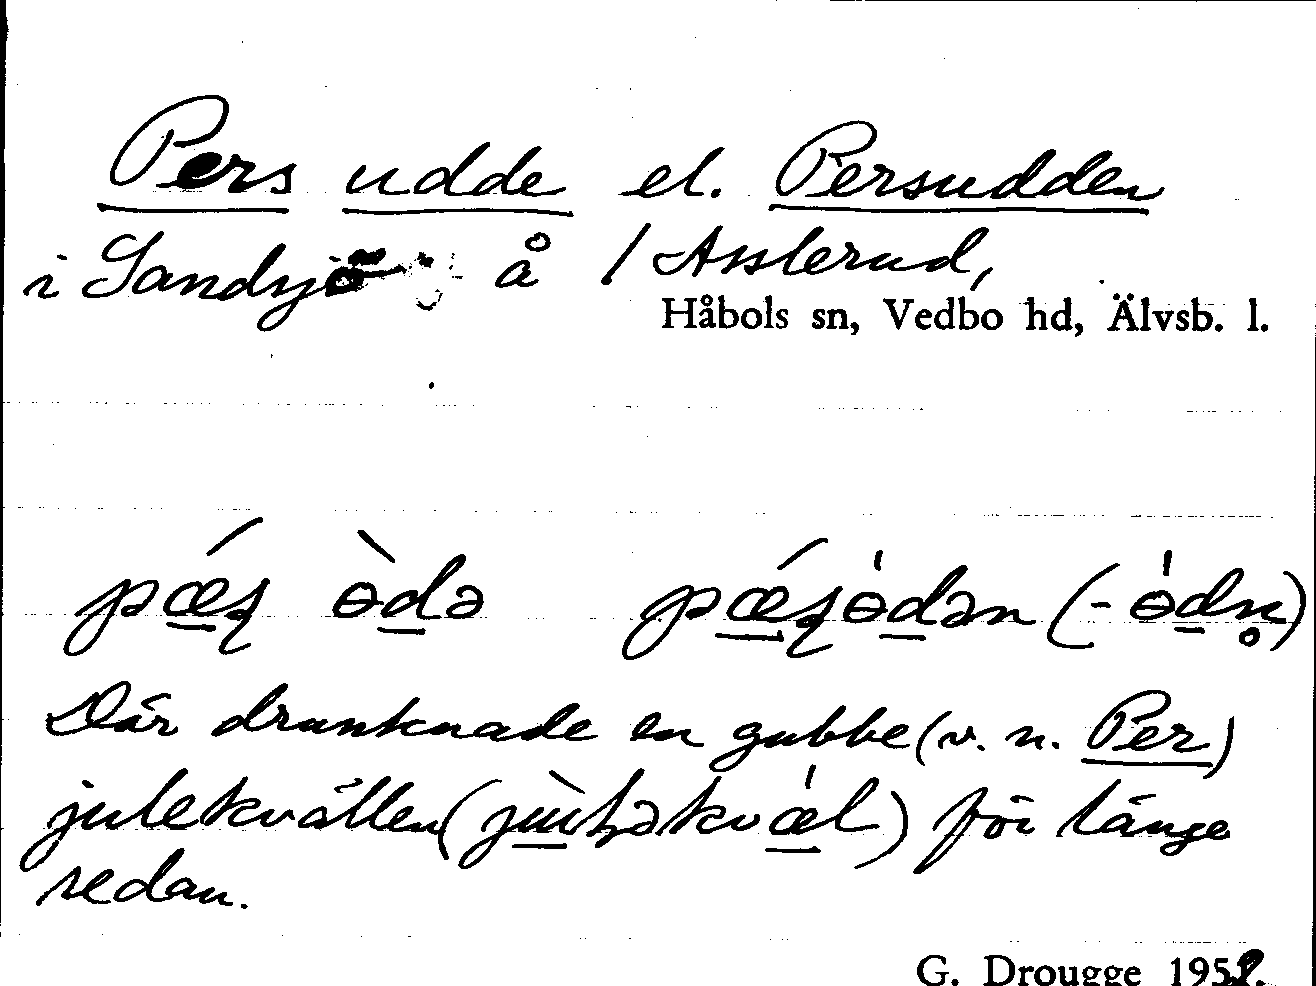 Pers udde el. Persudden
i Sandsjö å / Asslerud,
Håbols sn, Vedbo hd, Älvsb. l.
pǽʂ ɵ̀də pǽʂɵ́dən (-ɵ́dn̥)
Där drunknade en gubbe (v. n. Per)
julekvällen ( ) för länge
sedan.
G. Drougge 1952.